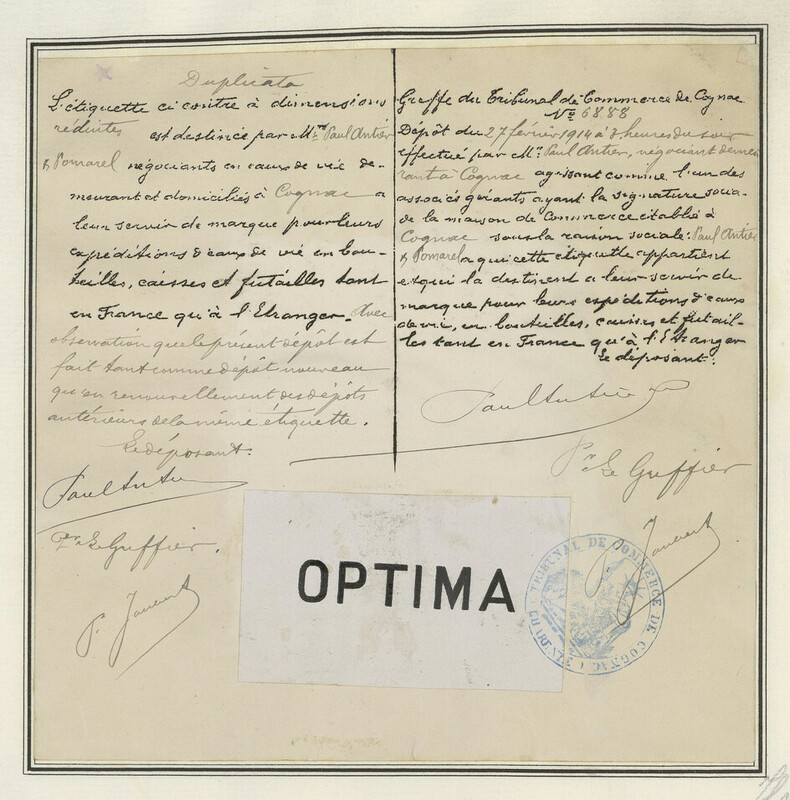 Duplicata
L'étiquette ci contre à dimensions
réduites est destinée par M.rs Paul Antier
& Pomarel négociants en eaux de vie de-
meurant et domiciliés à Cognac a
leur servir de marque pour leurs
expéditions d'eaux de vie en bou-
teilles, caisses et futailles tant
en France qu'à l'Etranger. Avec
observation que le présent dépôt est
fait tant comme dépôt nouveau
qu'en renouvellement des dépôts
antérieurs de la même étiquette.
Le déposant.
Paul Antier
Pr Le Greffier.
Greffe du Tribunal de Commerce de Cognac
No 6888
Dépôt du 27 février 1914 à 3 heures du soir
effectué par Mr. Paul Antier, négociant demeu
rant à Cognac agissant comme l'un des
associés gérants ayant la signature socia-
de la maison de Commerce établie à
Cognac sous la raison sociale: Paul Antier
& Pomarel a qui cette étiquette appartient
et qui la destinent a leur servir de
marque pour leurs expéditions d'eaux
de vie, en bouteilles, caisses et futail-
les tant en France qu'à l'Etranger
Le déposant.
Paul Antier
Pr Le Greffier
OPTIMA
TRIBUNAL DE COMMERCE DE COGNAC